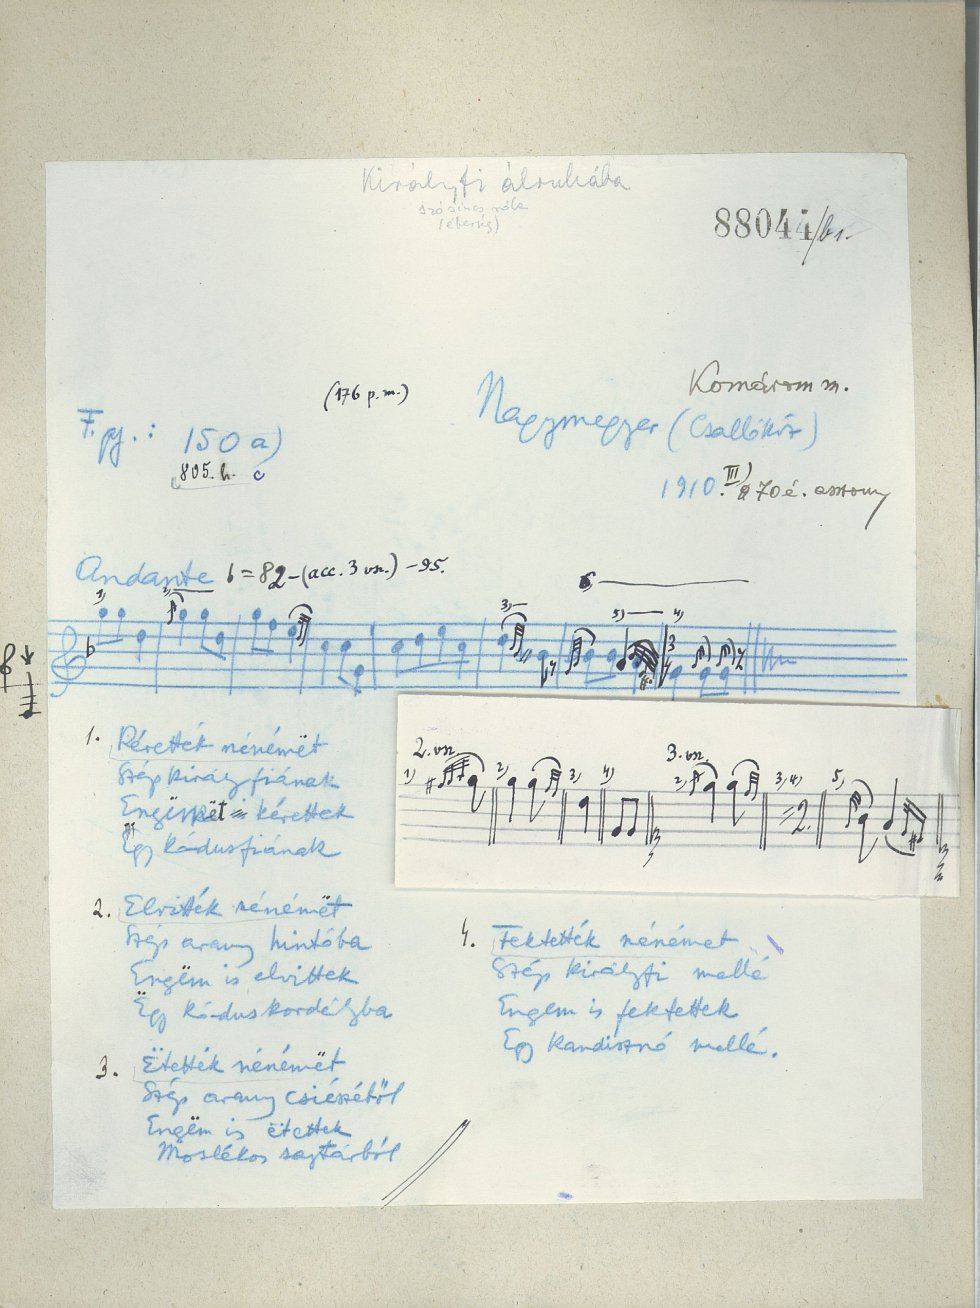 Királyfi álruhába
88044/b1.
Komárom m.
(176 p.m.)
Nagymegyer (Csallóköz)
F. pg.: 150 a)
805. h. c
1910. III) 70 é. asszony
Andante = 82 - (acc. 3 vn.) - 95.
6
1) 2) 3) 5) 4)
2. vn. 3. vn.
1) 2) 3) 4) 2) 3) 4) = 2. 5)
1. Kérették nénémët
Szép királyfiának
Engëm is kérettek
Egy kódusfiának
2. Elvitték nénémët
Szép arany hintóba
Engëm is elvittek
Ëgy kódus kordélyba
3. Ëtették nénémët
Szép arany csészéből
Engëm is ëtettek
Moslékos sajtárból
4. Fektették nénémet
Szép királyfi mellé
Engem is fektettek
Egy kandisznó mellé.